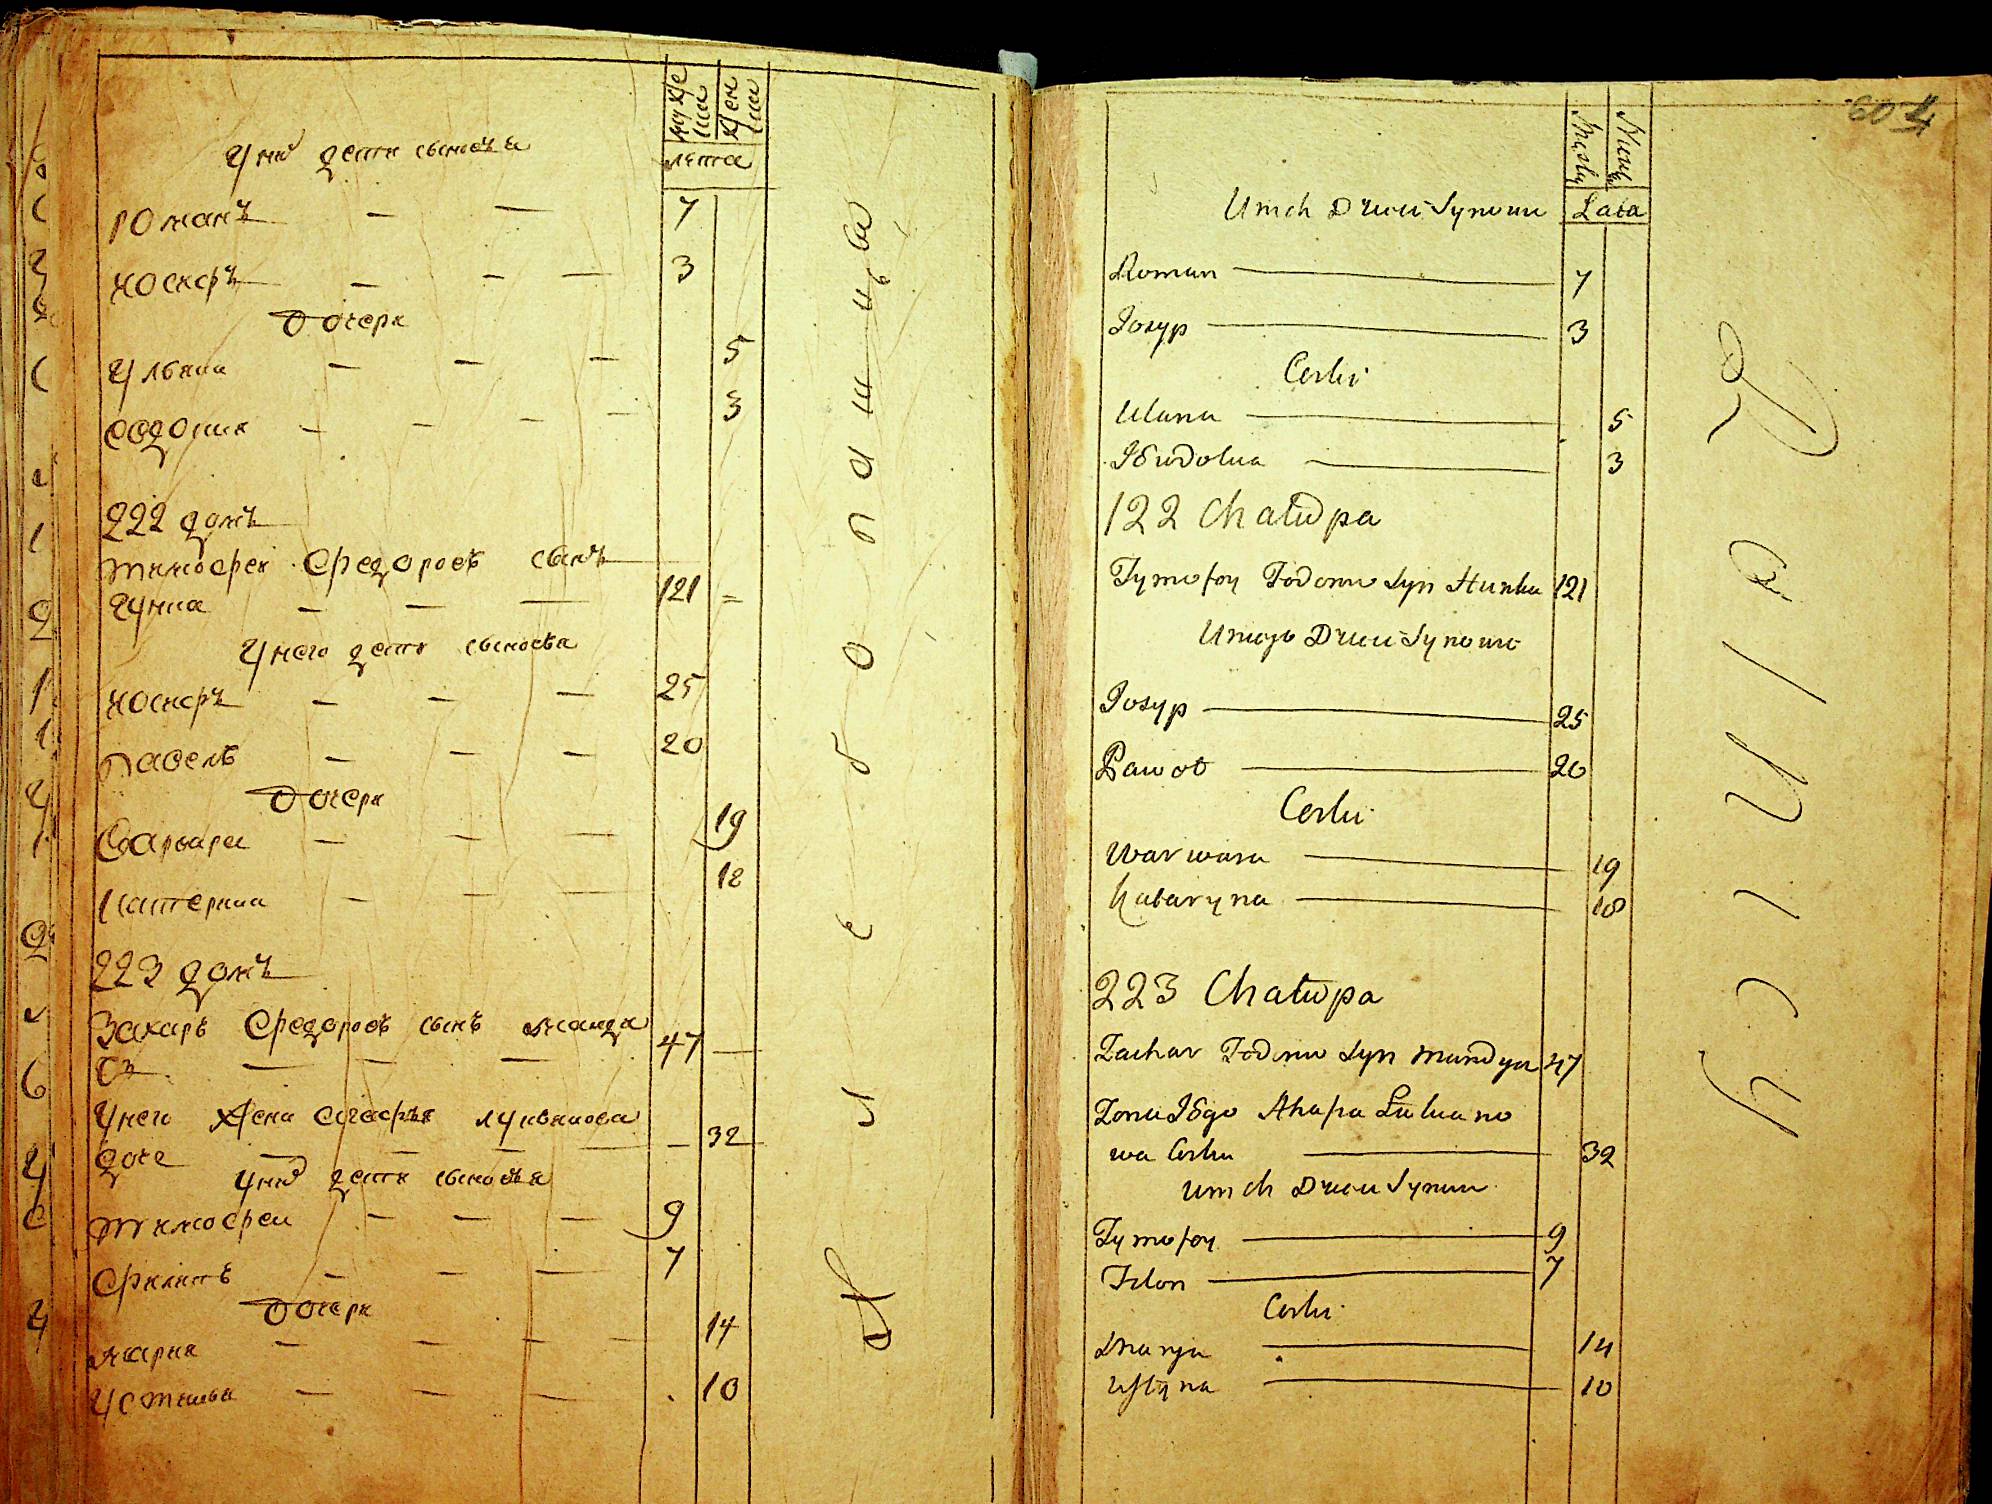 муже
ска
жен
ска
лета
У них дети сыновья
Романъ — — 7
Иосифъ — — — 3
Дочери
Ульяна — — — 5
Евдокия — — — — 3
222 домъ
Тимофей Федоровъ сынъ
Гунка — — — 121 =
У него дети сыновья
Иосифъ — — — 25
Павелъ — — — 20
Дочери
Варвара — — — 19
Катерина — — — 18
223 домъ
Захаръ Федоровъ сынъ Манда
— — — 47 —
У него жена Агафья Лукьянова
дочь — — — — 32
У них дети сыновья
Тимофеи — — — 9
Филипъ — — — 7
Дочери
Марья — — — — 14
Устинья — — — 10
Lata
U nich Dzieci Synowie
Roman 7
Josyp 3
Corki
Ulana 5
Jewdokia 3
122 Chałupa
Tymofoy Fedorow Syn Hunka 121
U niego Dzieci Synowie
Josyp 25
Paweł 20
Corki
Warwara 19
Kataryna 18
223 Chałupa
Zachar Fedorow Syn Mandya 47
Zona Jego Ahafia Łukiano
wa Corka 32
U nich Dzieci Synowie
Tymofoy 9
7
Corki
Marya 14
Ustyna 10